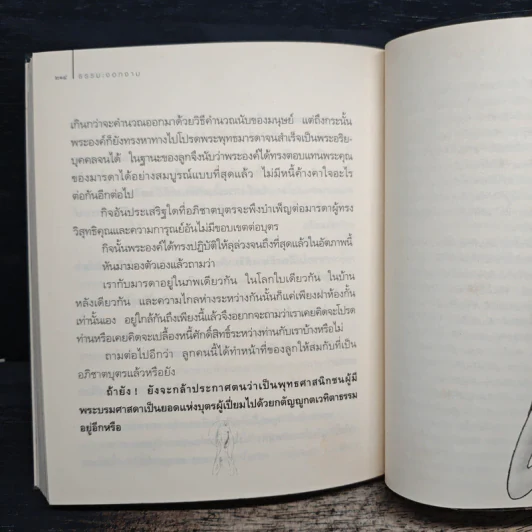 ๒๓๔ ธรรมะออกอาบ
เกินกว่าจะคำนวณออกมาด้วยวิธีคำนวณนับของมนุษย์ แต่ถึงกระนั้น
พระองค์ก็ยังทรงหาทางไปโปรดพระพุทธมารดาจนสำเร็จเป็นพระอริย-
บุคคลจนได้ ในฐานะของลูกจึงนับว่าพระองค์ได้ทรงตอบแทนพระคุณ
ของมารดาได้อย่างสมบูรณ์แบบที่สุดแล้ว ไม่มีหนี้ค้างคาใจอะไร
ต่อกันอีกต่อไป
กิจอันประเสริฐใดที่อภิชาตบุตรจะพึงบำเพ็ญต่อมารดาผู้ทรง
วิสุทธิคุณและความการุณย์อันไม่มีขอบเขตต่อบุตร
กิจนั้นพระองค์ได้ทรงปฏิบัติให้ลุล่วงจนถึงที่สุดแล้วในอัตภาพนี้
หันมามองตัวเองแล้วถามว่า
เรากับมารดาอยู่ในภพเดียวกัน ในโลกใบเดียวกัน ในบ้าน
หลังเดียวกัน และความไกลห่างระหว่างกันนั้นก็แค่เพียงฝาห้องกั้น
เท่านั้นเอง อยู่ใกล้กันถึงเพียงนี้แล้วจึงอยากจะถามว่าเราเคยคิดจะโปรด
ท่านหรือเคยคิดจะเปลื้องหนี้ศักดิ์สิทธิ์ระหว่างท่านกับเราบ้างหรือไม่
ถามต่อไปอีกว่า ลูกคนนี้ได้ทำหน้าที่ของลูกให้สมกับที่เป็น
อภิชาตบุตรแล้วหรือยัง
ถ้ายัง ! ยังจะกล้าประกาศตนว่าเป็นพุทธศาสนิกชนผู้มี
พระบรมศาสดาเป็นยอดแห่งบุตรผู้เปี่ยมไปด้วยกตัญญูกตเวทิตาธรรม
อยู่อีกหรือ